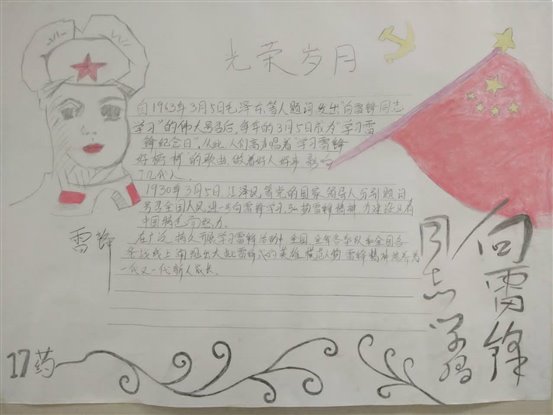 光荣岁月
自1963年3月5日毛泽东等人题词发出"向雷锋同志
学习"的伟大号召后,每年的3月5日成为"学习雷
锋纪念日",从此,人们高声唱着"学习雷锋
好榜样"的歌曲,做着好人好事,影响
了几代人。
1930年3月5日,江泽民等党和国家领导人分别题词
号召全国人民进一步向雷锋学习,弘扬雷锋精神
中国特色
在广泛、持久开展学习雷锋活动中,全国、全军各条战
年
一代又一代新人成长。
雷锋
向雷锋
同志学习
17药